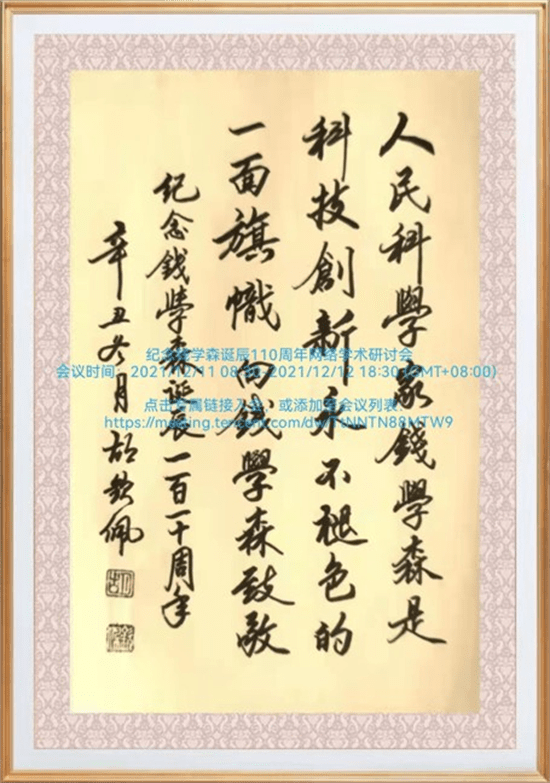 人民科學家錢學森是
科技創新永不褪色的
一面旗幟向錢學森致敬
纪念钱學森诞辰一百一十周年
辛丑冬月胡钦佩
纪念钱学森诞辰110周年网络学术研讨会
会议时间：2021/12/11 2021/12/12 18:30 (GMT+08:00)
点击专属链接入会，或添加至会议列表：